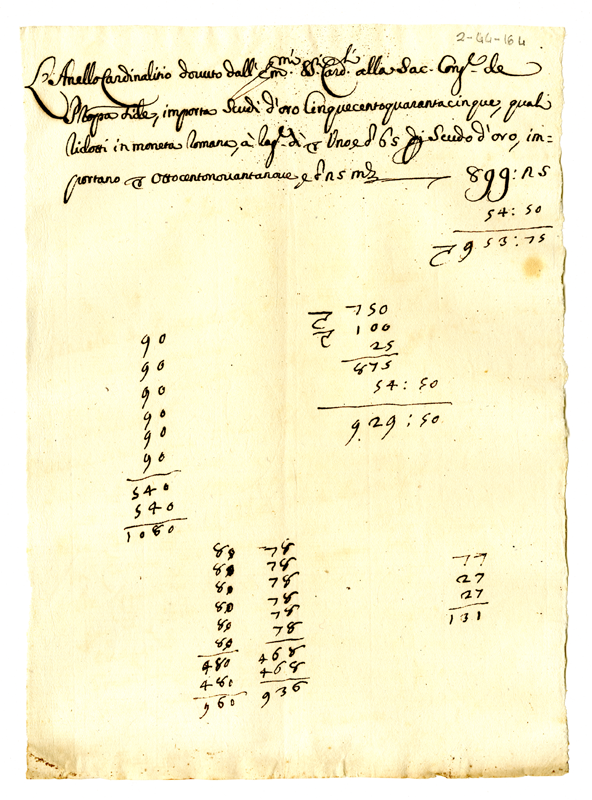 2-44-164
L'Anello Cardinalitio dovuto dall' Em.mi SS.ri Card.li alla Sac. Cong.e de
Propag.da Fide, importa Scudi d'oro Cinquecentoquarantacinque, quali
ridotti in moneta romana, à rag.e di ∇ Uno, e b 65 Scudo d'oro, im=
portano ∇ Ottocentonovantanove, e b 25 m.ta 899:25
54:50
∇ 953:75
∇ 750
∇ 100
25
875
54:50
929:50
90
90
90
90
90
90
540
540
1080
80 78
80 78
80 78
80 78
80 78
80 78
480 468
480 468
960 936
77
27
27
131